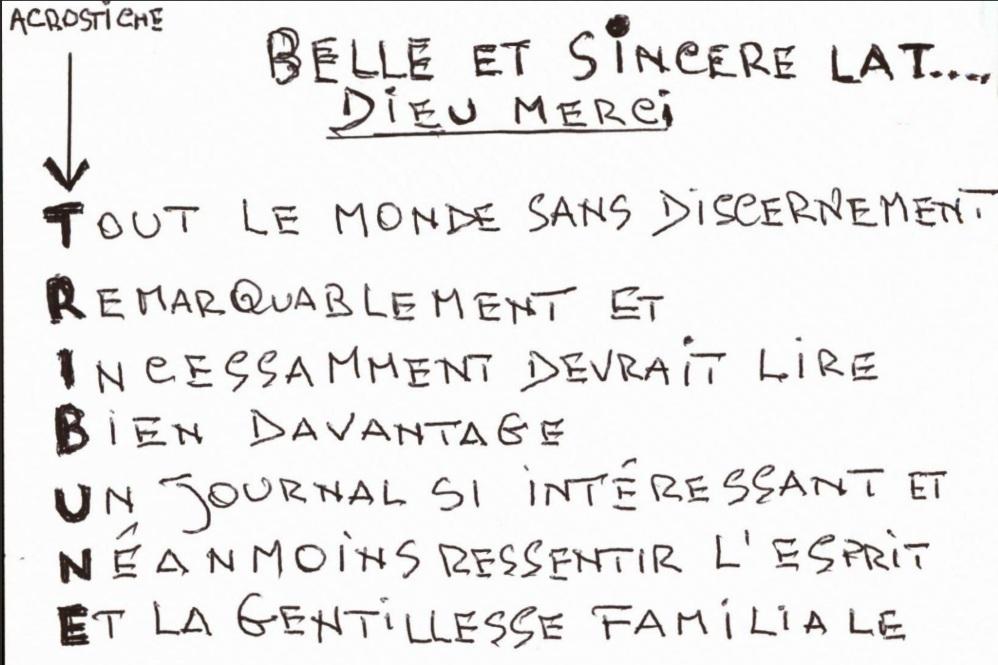 ACROSTICHE
BELLE ET SINCERE LAT....
DIEU MERCI
TOUT LE MONDE SANS DISCERNEMENT
REMARQUABLEMENT ET
INCESSAMMENT DEVRAIT LIRE
BIEN DAVANTAGE
UN JOURNAL SI INTÉRESSANT ET
NÉANMOINS RESSENTIR L'ESPRIT
ET LA GENTILLESSE FAMILIALE